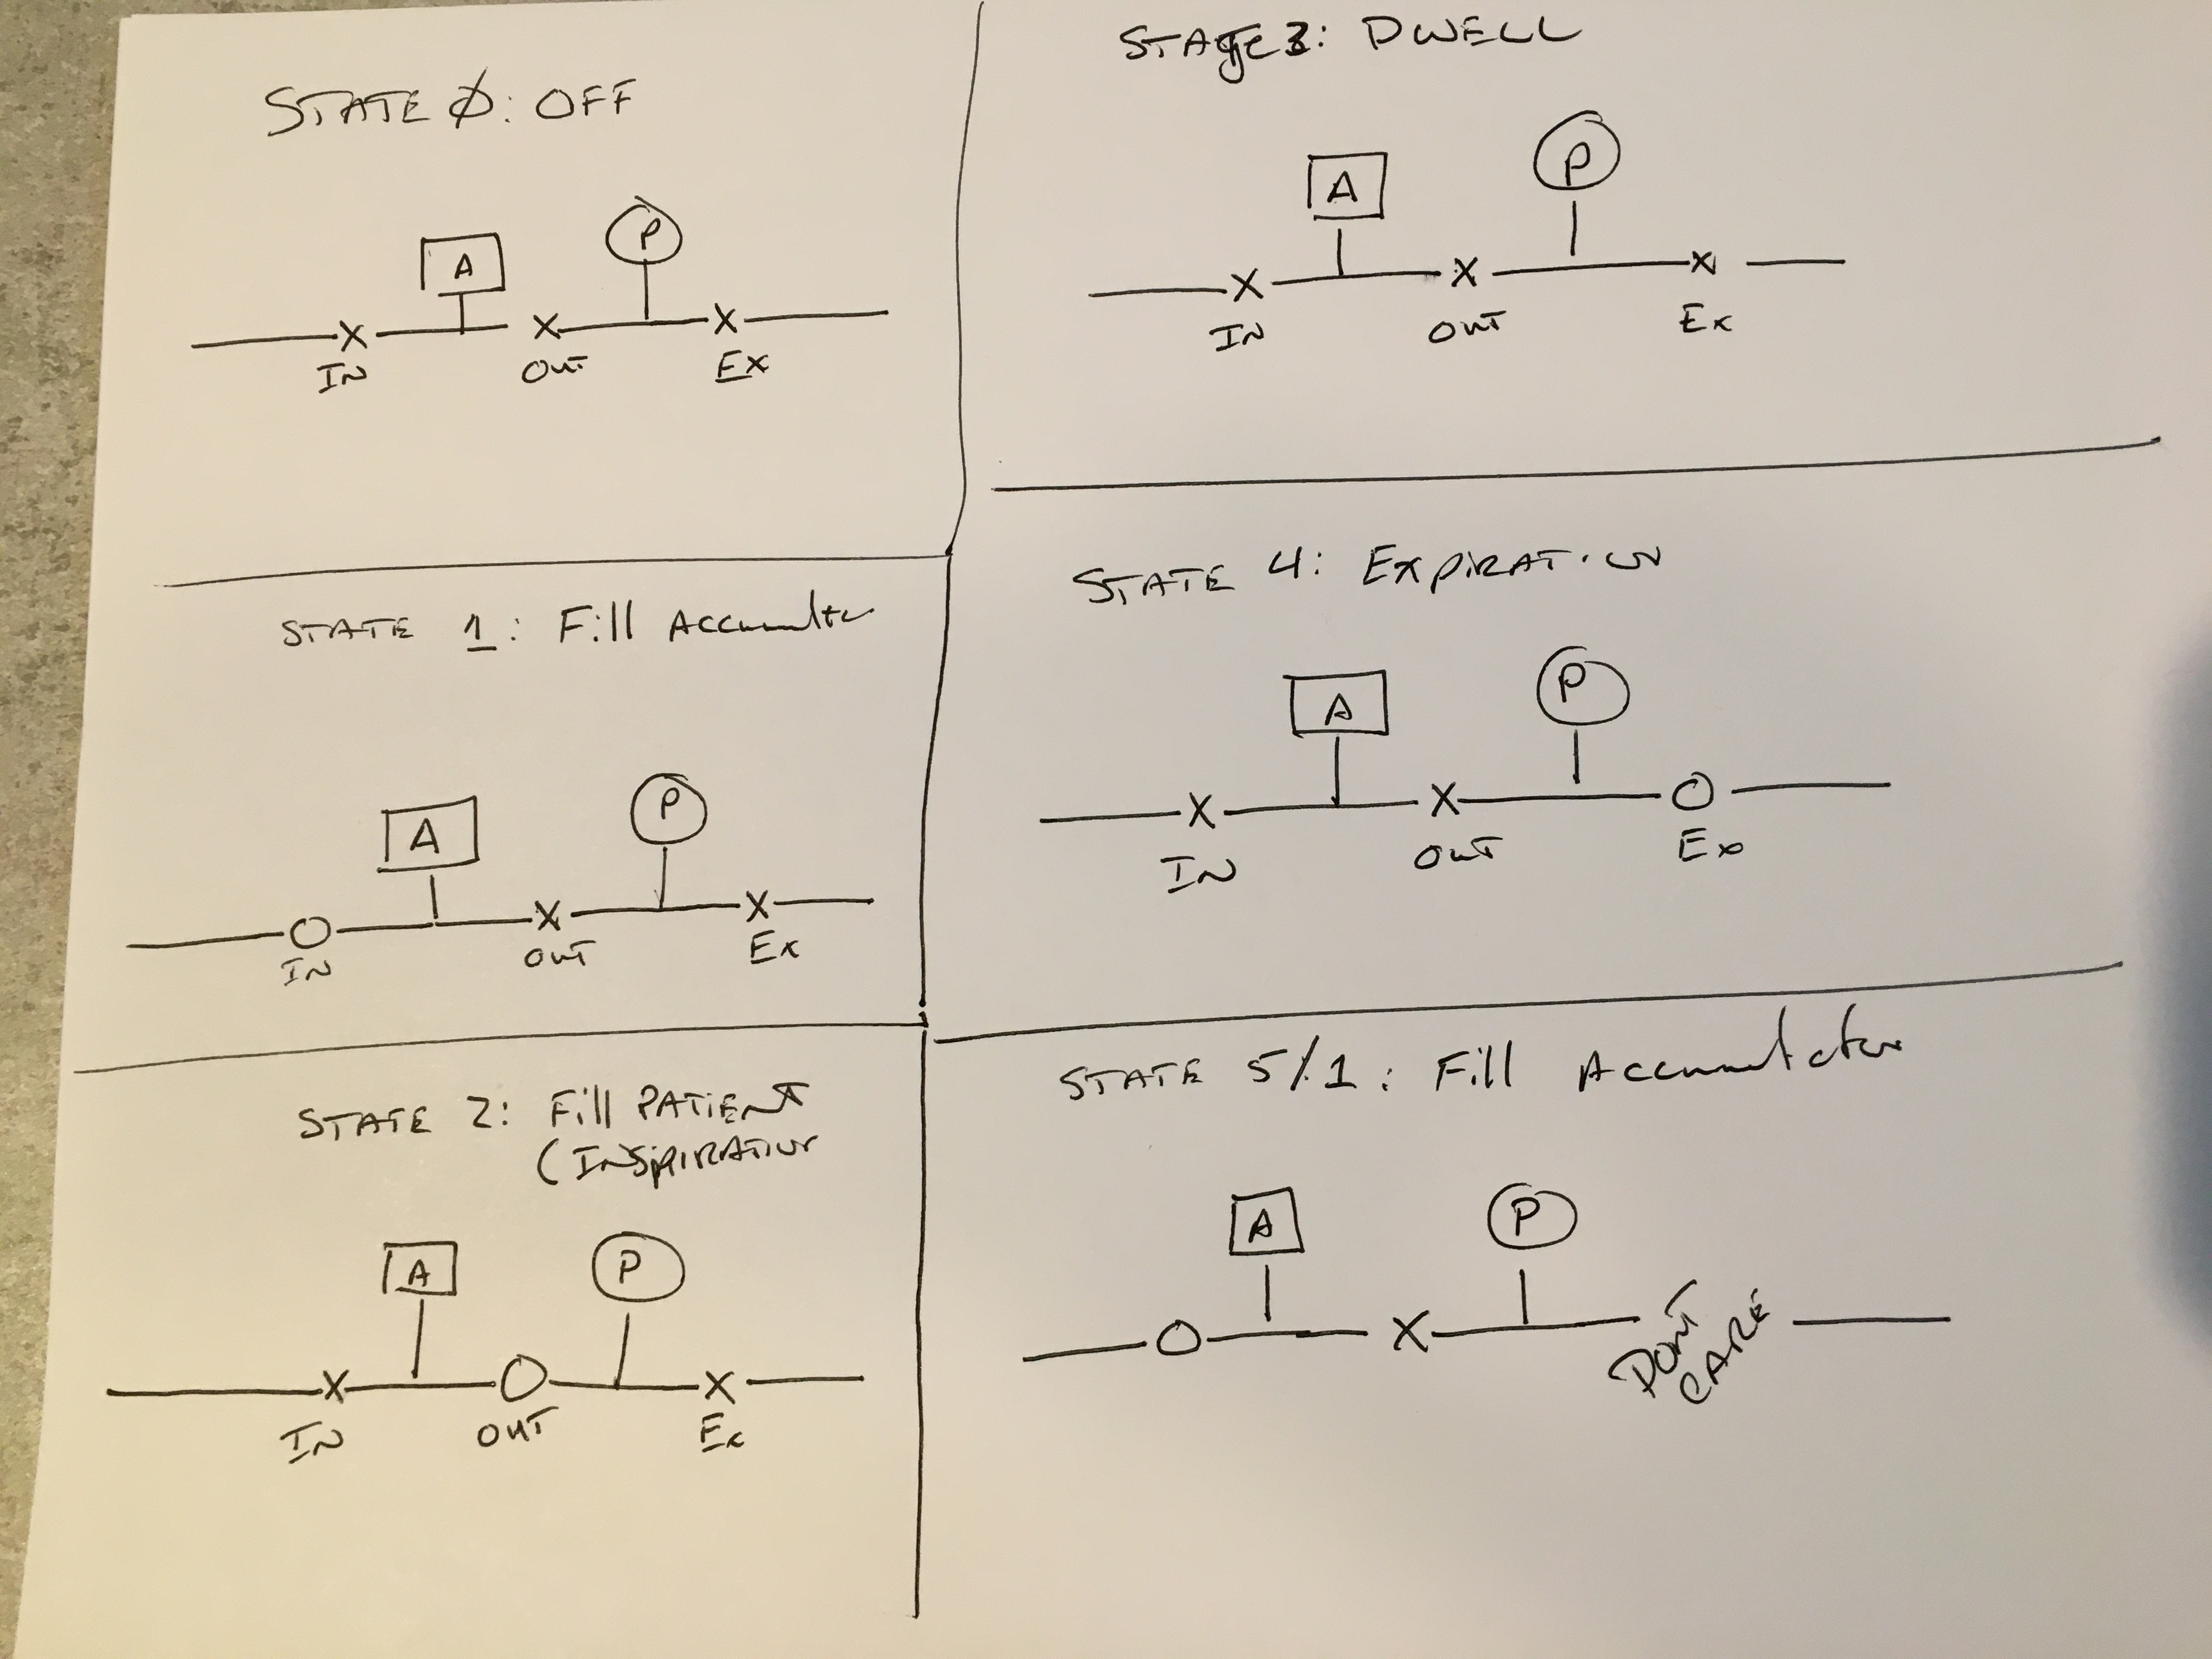 STATE Ø: OFF
A
P
X X X
IN OUT EX
STATE 1: Fill Accumulto
A
P
O X X
IN OUT Ex
STATE 2: Fill PATIENT
(INSPIRATION
A
P
X O X
IN OUT Ex
STAge3: DWELL
A
P
X X X
IN OUT Ex
STATE 4: EXPIRATION
A
P
X X O
IN OUT Ex
STATE 5/1: Fill Accumulator
A
P
O X
DON'T
CARE